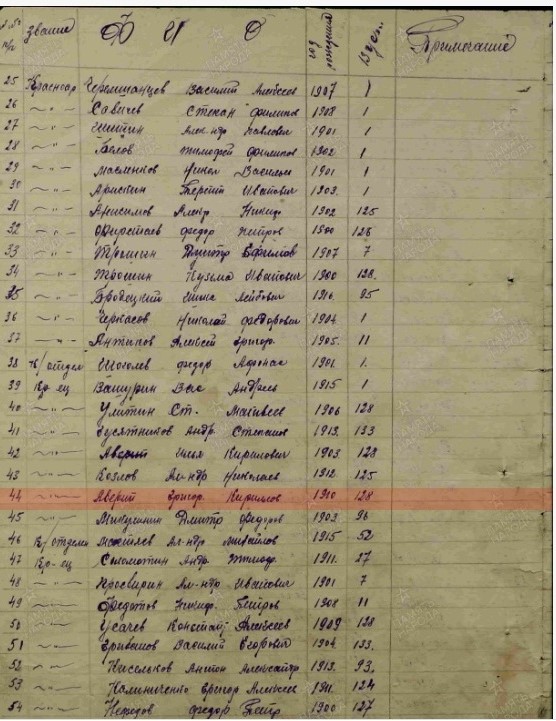 № п/п звание Ф И О год рождения ВУС Примечание
25 Красноар Черемшанцов Василий Алексеев 1907 1
26 —„— Савичев Степан Филипов 1908 1
27 —„— Шишкин Алек-др Павлович 1901 1
28 —„— Белов Тимофей Филипов 1902 1
29 —„— Масленков Никол Васильев 1901 1
30 —„— Арискин Терентий Иванович 1903 1
31 —„— Анисимов Алекр Никиф 1902 125
32 —„— Федор Петров 1900 126
33 —„— Трошин Дмитр Ефимов 1907 7
34 —„— Трошин Кузьма Иванович 1900 128
35 —„— Бродецкий Лейбович 1916 95
36 —„— Черкасов Николай Федорович 1904 1
37 —„— Антипов Алексей Григор 1905 11
38 к/отделен Щеголев Федор Афонас 1901 1
39 кр-ец Вашурин Вас Андреев 1915 1
40 —„— Улитин Ст. Матвеев 1906 128
41 —„— Гусятников Андр Степанов 1913 133
42 —„— Аверин Илья Кирилович 1903 128
43 —„— Козлов Ал-ндр Николаев 1912 125
44 —„— Аверин Григор Кирилов 1910 128
45 —„— Дмитр Федоров 1903 96
46 к/отделен Ал-ндр Михайлов 1915 52
47 кр-ец Андр Тимоф 1911 27
48 —„— Просвирин Ал-ндр Иванович 1901 7
49 —„— Федотов Никиф Петров 1908 11
50 —„— Усачев Констант Алексеев 1909 128
51 —„— Василий Егорович 1904 133
52 —„— Кисельков Антон Александр 1913 93
53 —„— Калиниченко Григор Алексеев 1911 124
54 —„— Нефедов Федор Петр 1900 127